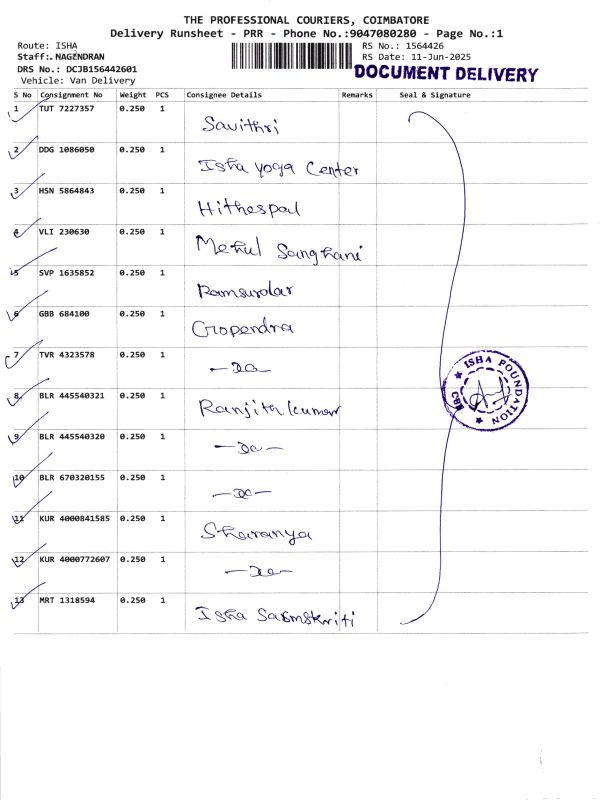 THE PROFESSIONAL COURIERS, COIMBATORE
Delivery Runsheet - PRR - Phone No.:9047080280 - Page No.:1
Route: ISHA RS No.: 1564426
Staff: NAGENDRAN RS Date: 11-Jun-2025
DRS No.: DCJB156442601 DOCUMENT DELIVERY
Vehicle: Van Delivery
S No Consignment No Weight PCS Consignee Details Remarks Seal & Signature
1 TUT 7227357 0.250 1 Savithri
2 DDG 1086050 0.250 1 Isha Yoga Center
3 HSN 5864843 0.250 1 Hithespal
4 VLI 230630 0.250 1 Mehul Sanghani
5 SVP 1635852 0.250 1 Ramsurdar
6 GBB 684100 0.250 1 Gropendra
7 TVR 4323578 0.250 1 -do-
8 BLR 445540321 0.250 1 Ranjith kumar
9 BLR 445540320 0.250 1 -do-
10 BLR 670320155 0.250 1 -do-
11 KUR 4000841585 0.250 1 Sharanya
12 KUR 4000772607 0.250 1 -do-
13 MRT 1318594 0.250 1 Isha Sasmskriti
ISHA FOUNDATION